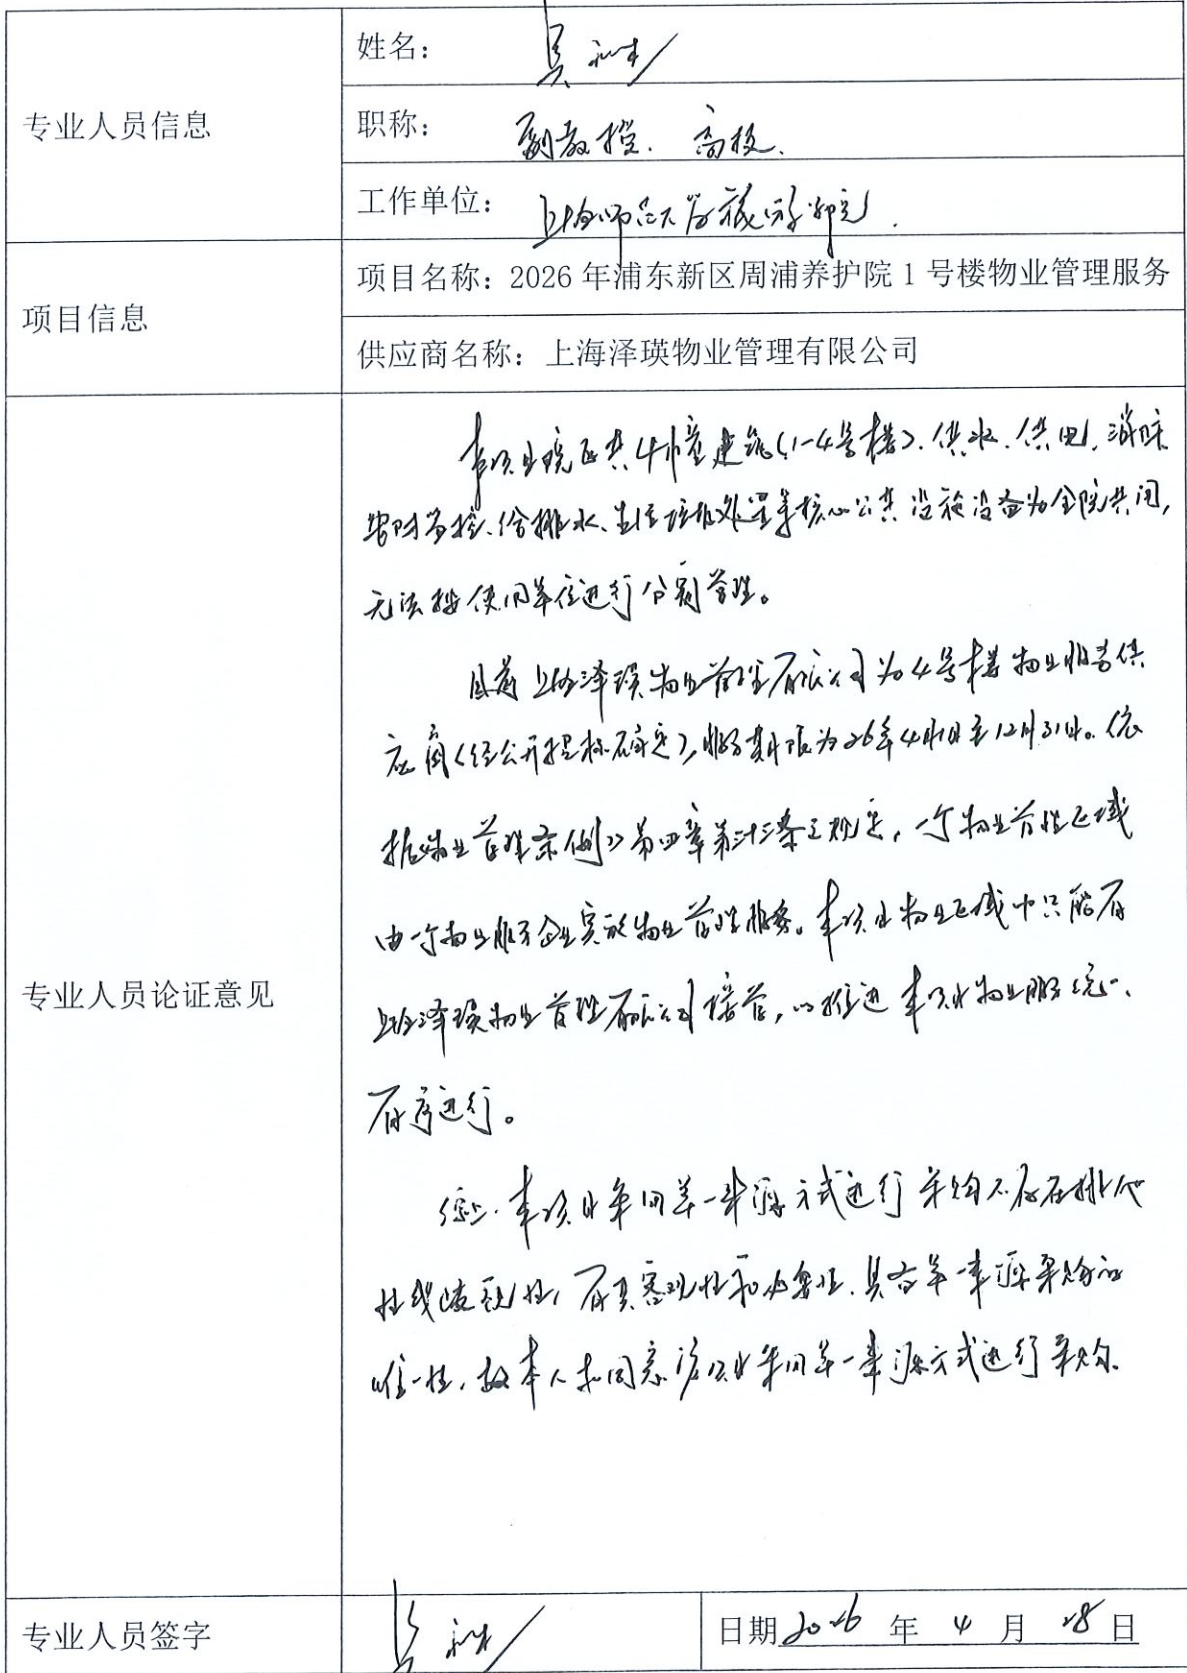 姓名：吴
专业人员信息
职称：副教授、高技.
工作单位：上海师范大学旅游学院.
项目信息
项目名称：2026年浦东新区周浦养护院1号楼物业管理服务
供应商名称：上海泽瑛物业管理有限公司
专业人员论证意见
本项目院区共4幢建筑(1-4号楼)、供水、供电、消防
安防监控、给排水、生活垃圾处置等核心公共设施设备为全院共用，
无法按使用单位进行分割管理。
目前上海泽瑛物业管理有限公司为4号楼物业服务供
应商(经公开招标确定)，服务期限为26年4月1日至12月31日。依
据《物业管理条例》第四章第三十三条之规定，一个物业管理区域
由一个物业服务企业实施物业管理服务。本项目物业区域中只能有
上海泽瑛物业管理有限公司接管，以推进本项目物业服务统一、
有序进行。
综上，本项目采用单一来源方式进行采购不存在排他
性或歧视性，有其客观性和必要性，具有单一来源采购的
唯一性，故本人同意该项目采用单一来源方式进行采购.
专业人员签字
吴
日期2026年4月28日